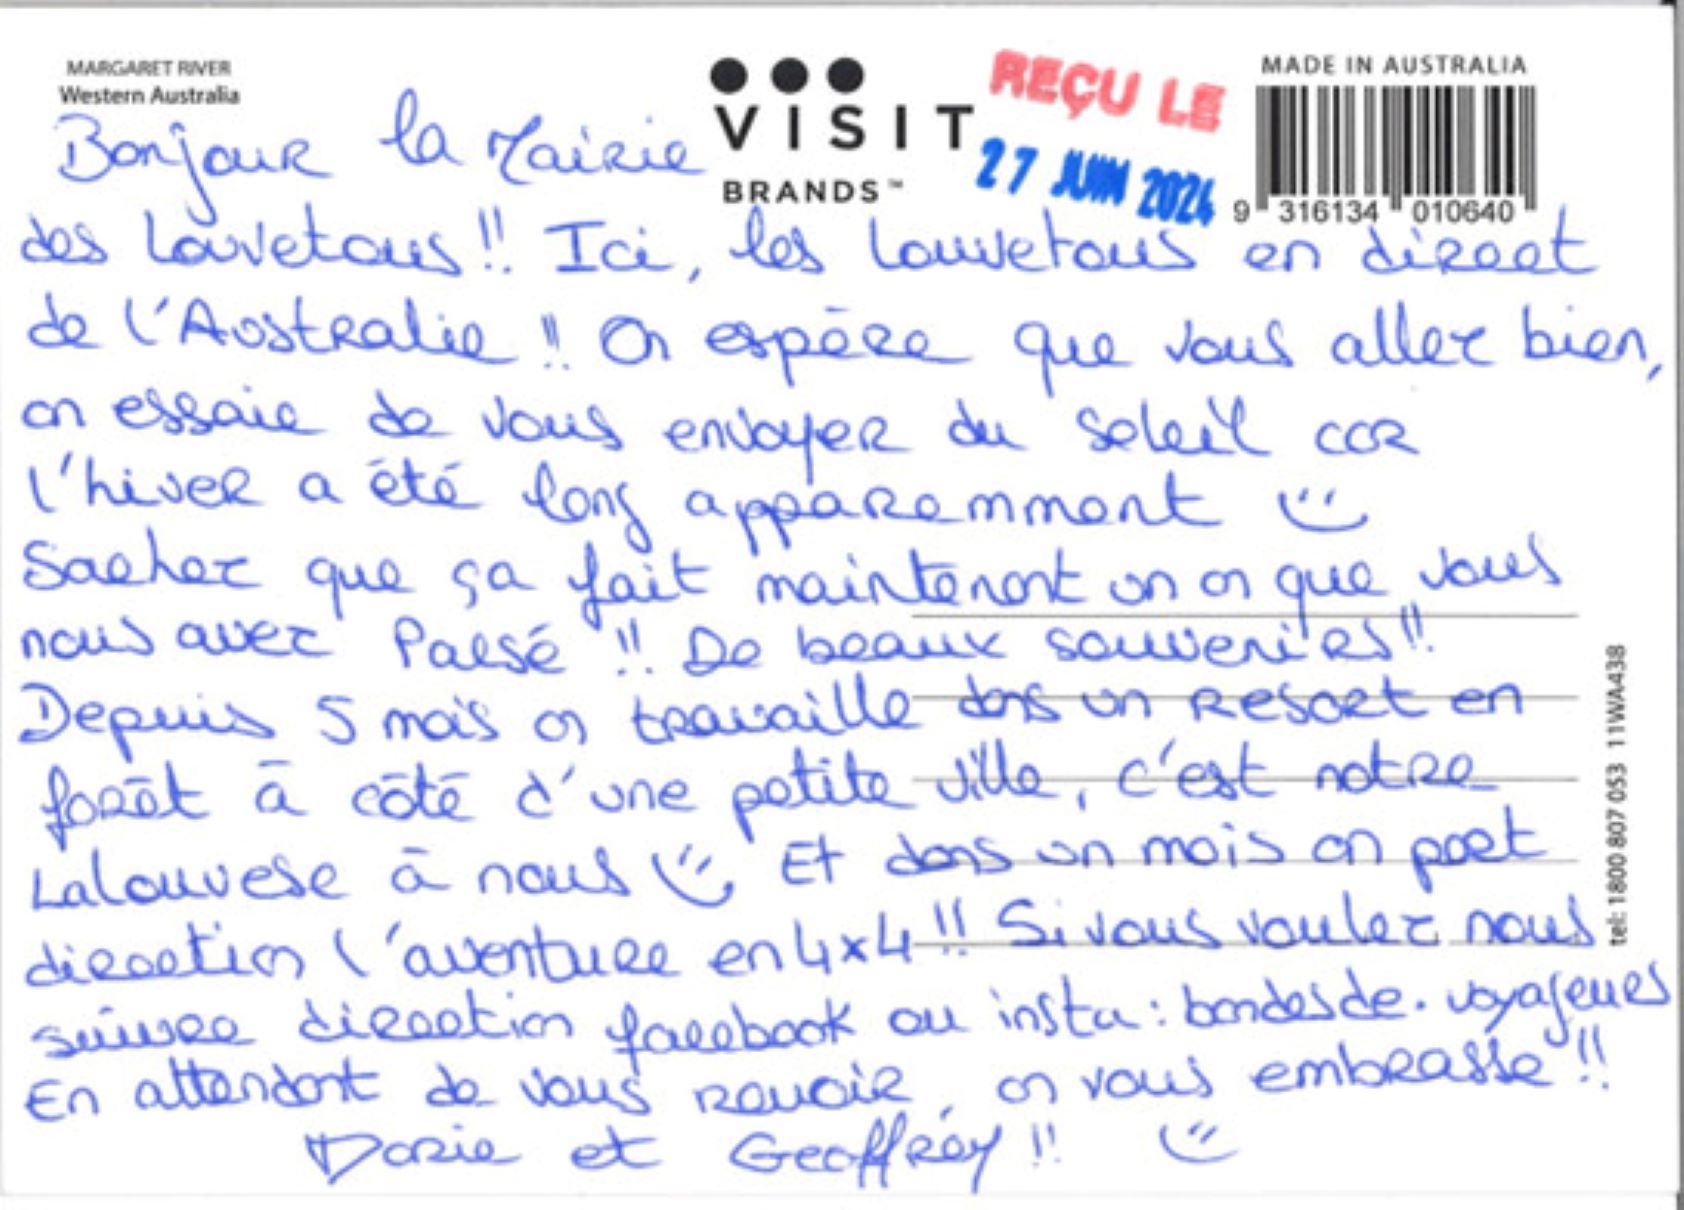 MARGARET RIVER
Western Australia
VISIT
BRANDS™
REÇU LE
27 JUIN 2024
MADE IN AUSTRALIA
9 316134 010640
Bonjour la Mairie
des Louvetous !! Ici, les Louvetous en direct
de l'Australie !! On espère que vous allez bien,
on essaie de vous envoyer du soleil car
l'hiver a été long apparemment
Sachez que ça fait maintenant un an que vous
nous avez Pacsé !! De beaux souvenirs !!
Depuis 5 mois on travaille dans un resort en
forêt à côté d'une petite ville, c'est notre
Lalouvesc à nous Et dans un mois on part
direction l'aventure en 4x4 !! Si vous voulez nous
suivre direction facebook ou insta : bandesde.voyageurs
En attendant de vous revoir, on vous embrasse !!
Marie et Geoffrey !!
tel: 1800 807 053 11WA438